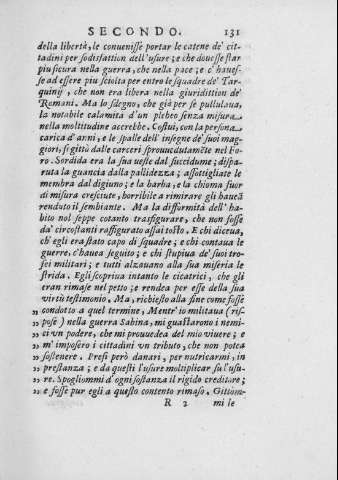 SECONDO. 131
della libertà, le conuenisse portar le catene de' cit-
tadini per sodisfattion dell'usure; e che douesse star
piu sicura nella guerra, che nella pace; e c'haues-
se ad essere piu sciolta per entro le squadre de' Tar-
quinij, che non era libera nella giuridittion de'
Romani. Ma lo sdegno, che già per se pullulaua,
la notabile calamità d'un plebeo senza misura
nella moltitudine accrebbe. Costui, con la persona
carica d'armi, e le spalle dell'insegne de' suoi mag-
giori, si gittò dalle carceri sprouedutamēte nel Fo-
ro. Sordida era la sua ueste dal succidume; dispa-
ruta la guancia dalla pallidezza; assottigliate le
membra dal digiuno; e la barba, e la chioma fuor
di misura cresciute, horribile a rimirare gli haueā
renduto il sembiante. Ma la difformità dell'ha-
bito nol seppe cotanto trasfigurare, che non fosse
da' circostanti raffigurato assai tosto. E chi diceua,
ch'egli era stato capo di squadre; e chi contaua le
guerre, c'hauea seguito; e chi stupiua de' suoi tro-
fei militari; e tutti alzauano alla sua miseria le
strida. Egli scopriua intanto le cicatrici, che gli
eran rimase nel petto; e rendea per esse della sua
virtù testimonio. Ma, richiesto alla fine come fosse
„ condotto a quel termine, Mentr'io militaua (ris-
„ pose) nella guerra Sabina, mi guastarono i nemi-
„ ci vn podere, che mi prouuedea del mio viuere; e
„ m'imposero i cittadini vn tributo, che non potea
„ sostenere. Presi però danari, per nutricarmi, in
„ prestanza; e da questi l'usure moltiplicar su l'usu-
„ re. Spogliommi d'ogni sostanza il rigido creditore;
„ e fosse pur egli a questo contento rimaso. Gittom-
R 2 mi le